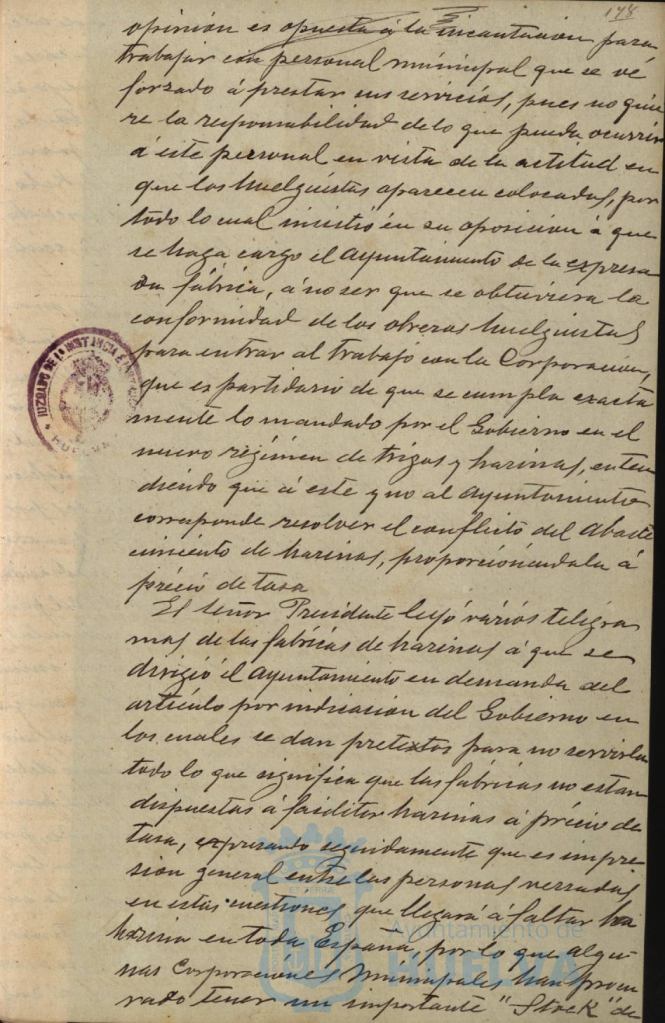 178
opinión es opuesta á la incautación para
trabajar con personal municipal que se vé
forzado á prestar sus servicios, pues no quie
re la responsabilidad de lo que pueda ocurrir
á este personal en vista de la actitud en
que los huelguistas aparecen colocados, por
todo lo cual insistió en su oposición á que
se haga cargo el Ayuntamiento de la expresa
da fábrica, á no ser que se obtuviera la
conformidad de los obreros huelguistas
para entrar al trabajo con la Corporación,
que es partidario de que se cumpla exacta
mente lo mandado por el Gobierno en el
nuevo régimen de trigos y harinas, enten
diendo que á este y no al Ayuntamiento
corresponde resolver el conflicto del Abaste
cimiento de harinas, proporcionándola á
précio de tasa
El señor Presidente leyó varios telegra
mas de las fabricas de harinas á que se
dirigió el Ayuntamiento en demanda del
artículo por indicación del Gobierno en
los cuales se dan pretextos para no servirla
todo lo que significa que las fábricas no estan
dispuestas á facilitar harinas á précio de
tasa, expresando seguidamente que es impre
sion general entre las personas versadas
en estas cuestiones que llegará á faltar ha
harina en toda España, por lo que algu
nas Corporaciones Municipales han procu
rado tener un importante "Stock" de
JUZGADO DE 1ª INSTANCIA
HUELVA
Ayuntamiento de
HUELVA